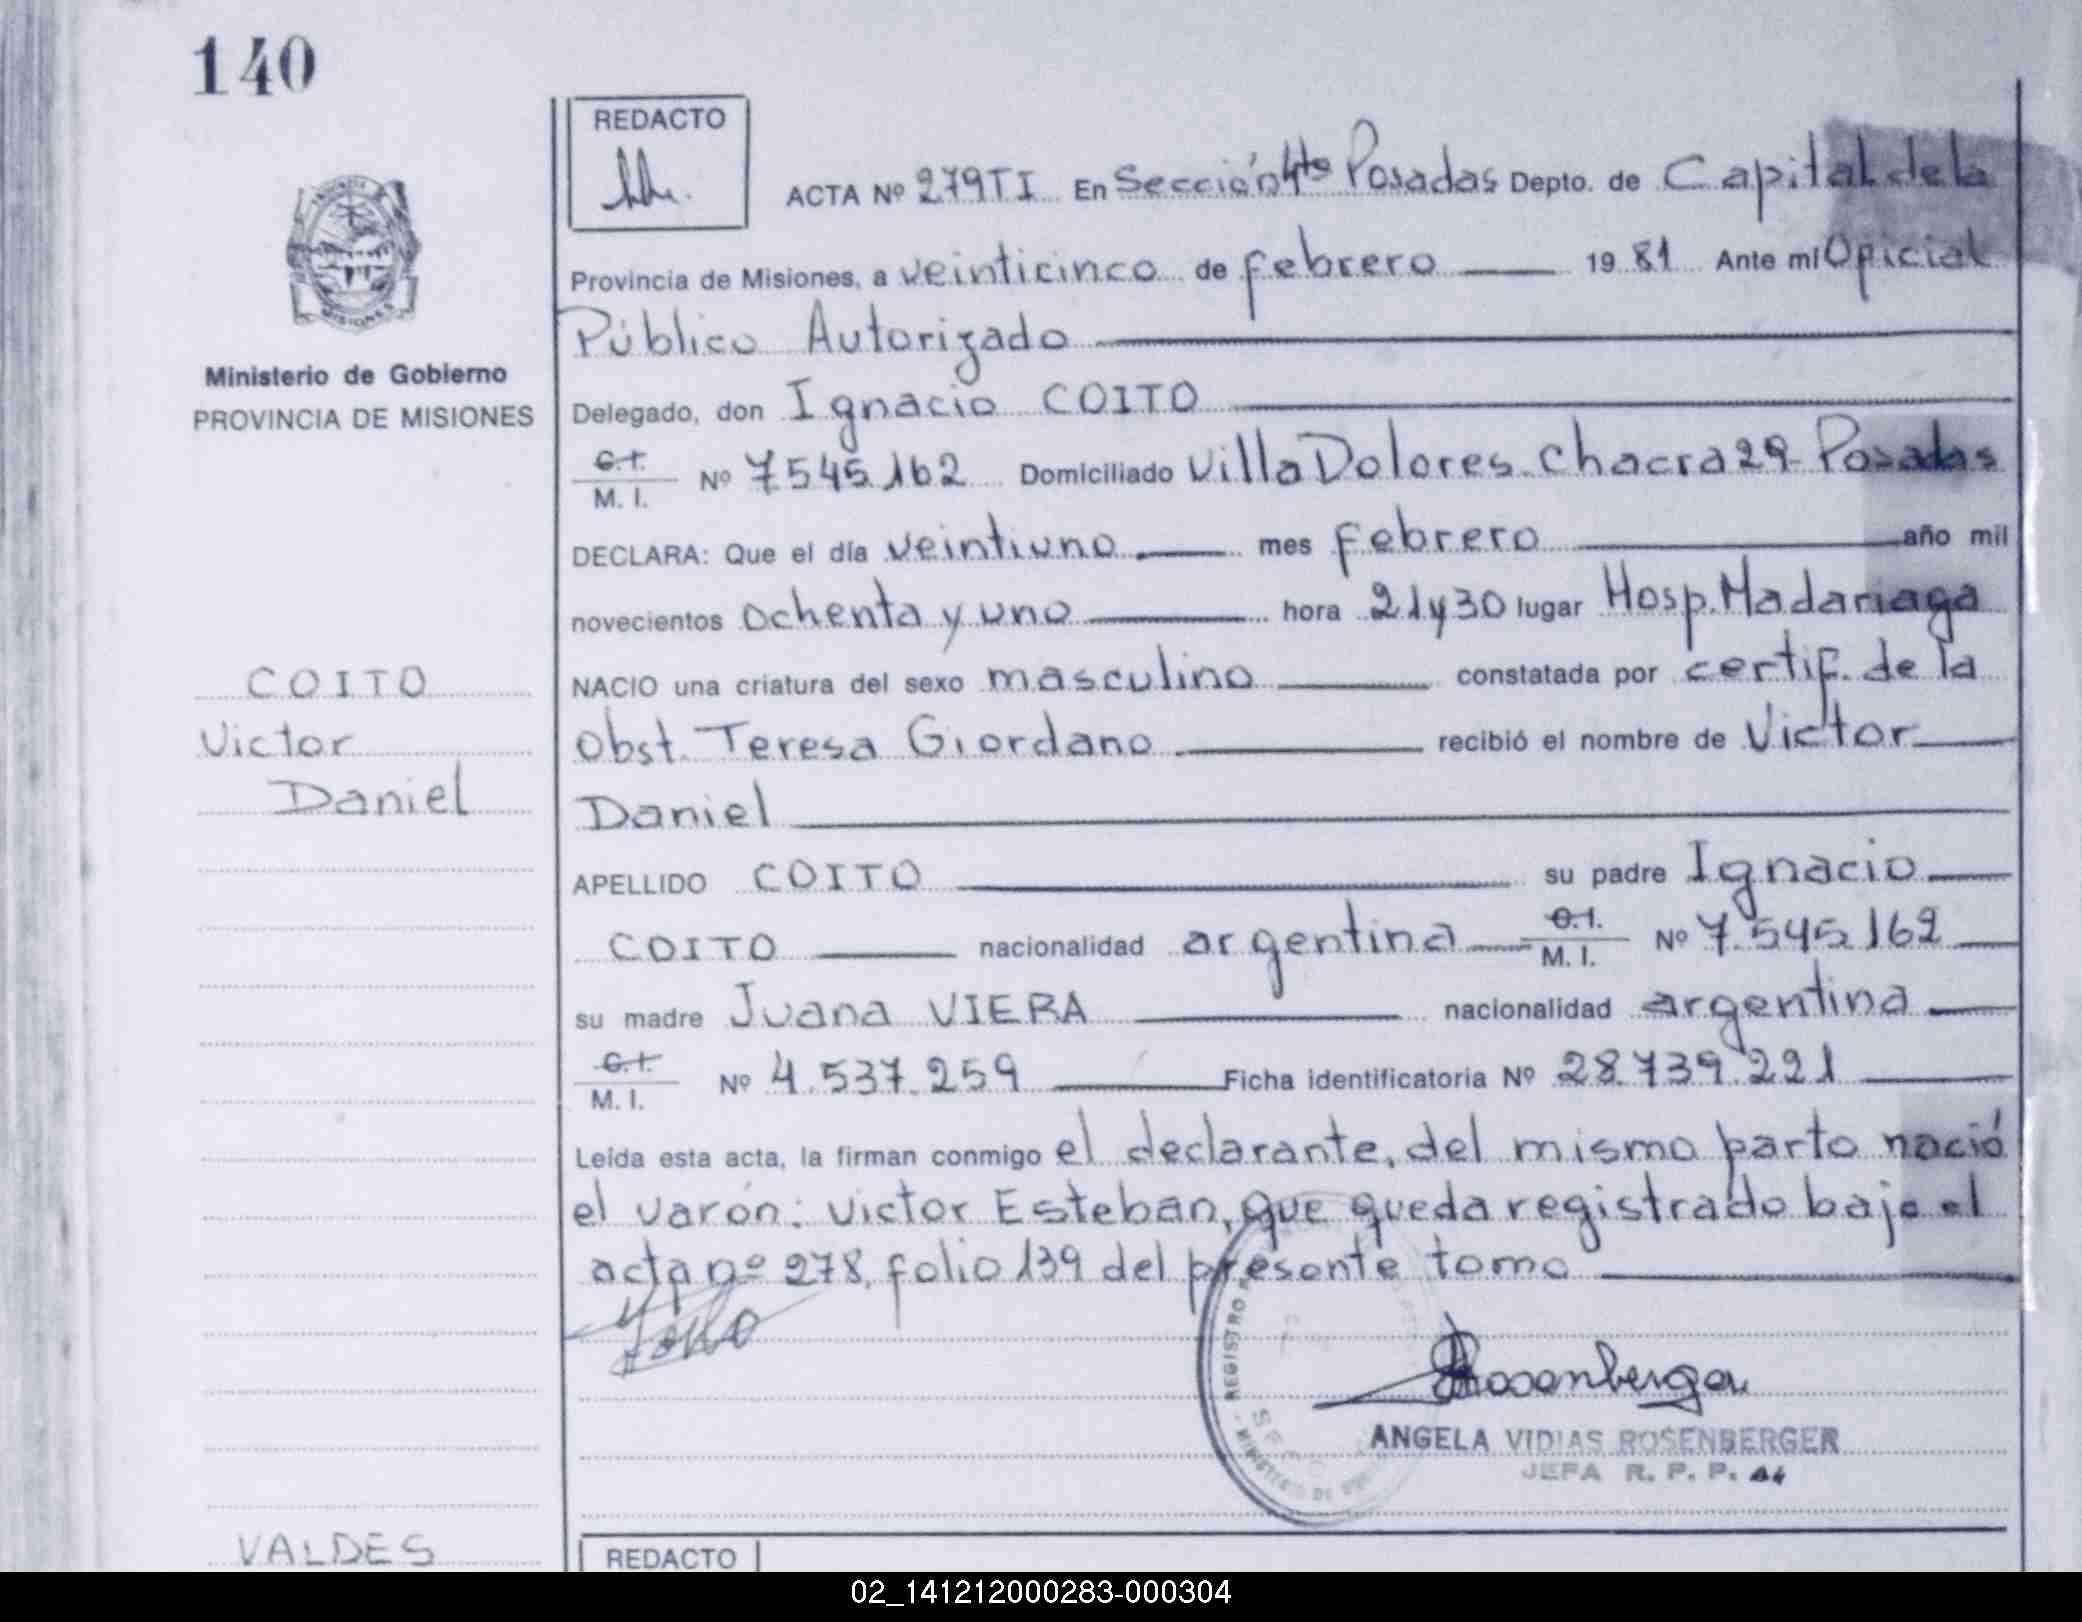 140
REDACTO
ACTA Nº 279TI En Sección 4ta Posadas Depto. de Capital de la
Provincia de Misiones, a veinticinco de febrero 19 81 Ante mí Oficial
Público Autorizado
Delegado, don Ignacio COITO
C.I.
M. I. Nº 7545.162 Domiciliado Villa Dolores. Chacra 29 - Posadas
DECLARA: Que el día veintiuno mes febrero año mil
novecientos ochenta y uno hora 21y30 lugar Hosp. Madariaga
NACIO una criatura del sexo masculino constatada por certif. de la
Obst. Teresa Giordano recibió el nombre de Victor
Daniel
APELLIDO COITO su padre Ignacio
COITO nacionalidad argentina C.I. M. I. Nº 7.545.162
su madre Juana VIERA nacionalidad argentina
C.I.
M. I. Nº 4.537.259 Ficha identificatoria Nº 28.739.221
Leída esta acta, la firman conmigo el declarante, del mismo parto nació
el varón: Victor Esteban, que queda registrado bajo el
acta nº 278, folio 139 del presente tomo
Rosenberger
ANGELA VIDIAS ROSENBERGER
JEFA R. P. P.
REDACTO
MISIONES
Ministerio de Gobierno
PROVINCIA DE MISIONES
COITO
Victor
Daniel
VALDES
02_141212000283-000304